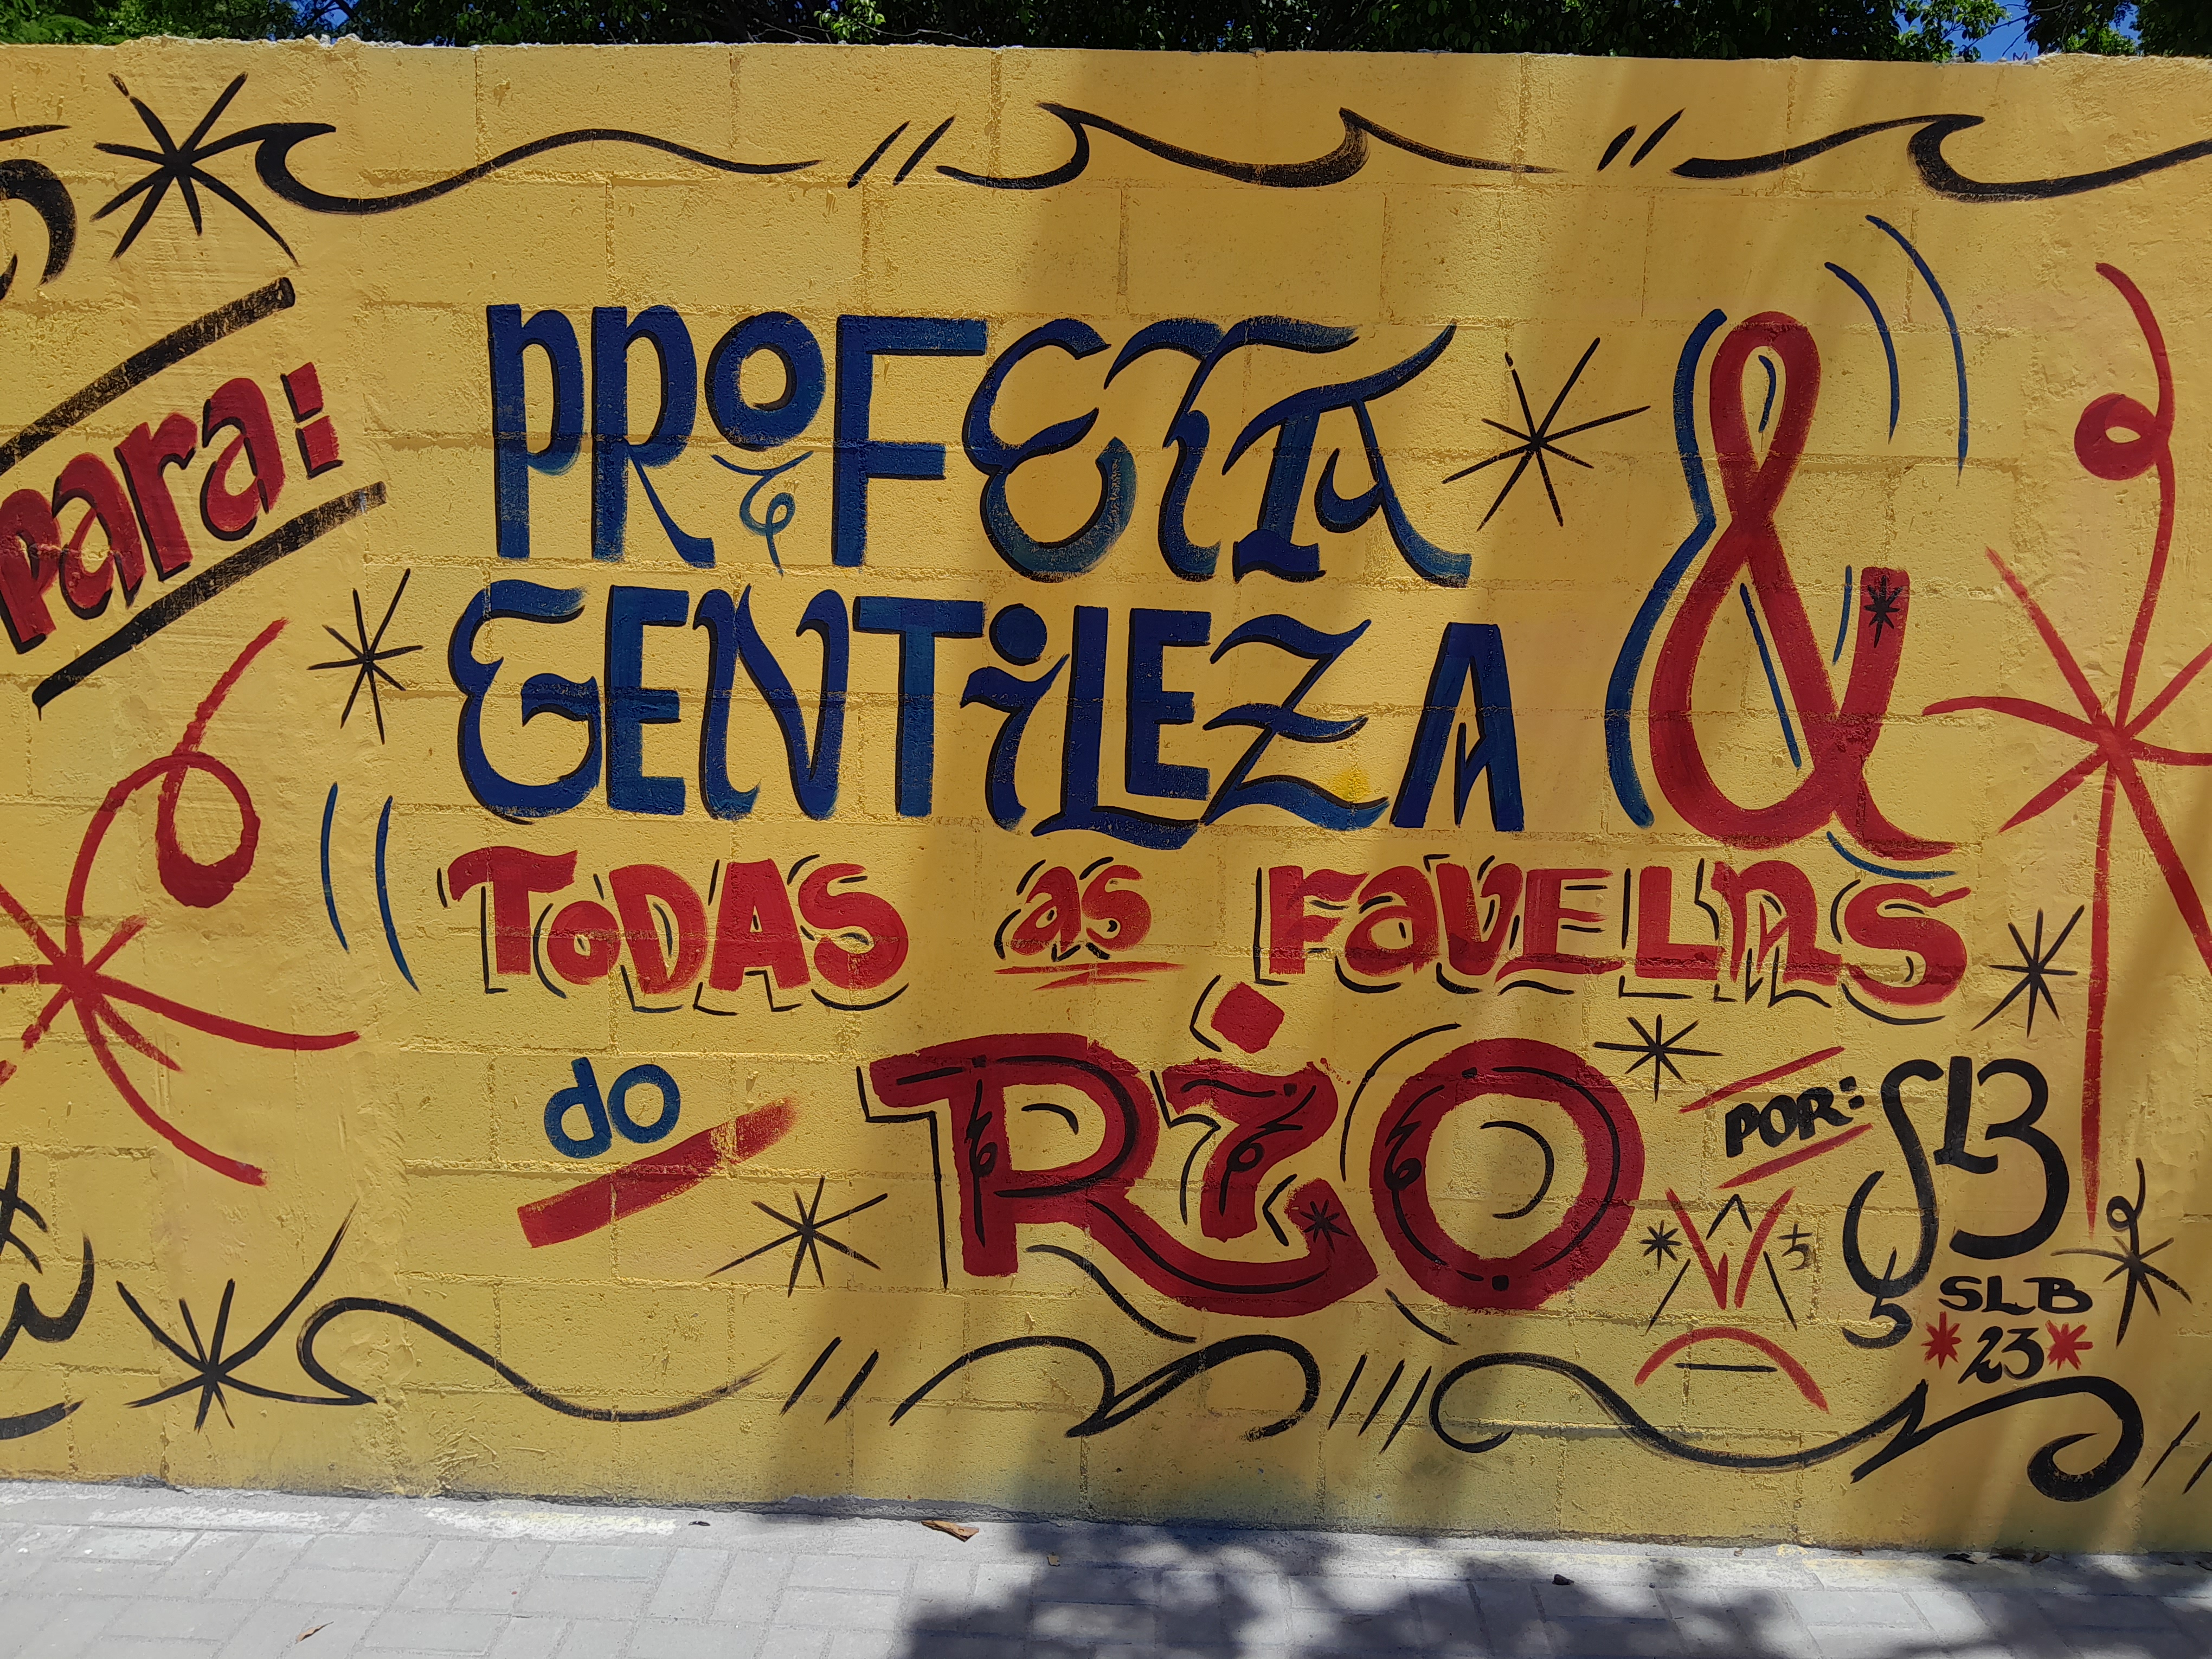 Para:
PROFETA
GENTILEZA &
TODAS as FAVELAS
do RIO
POR: SLB
SLB
23